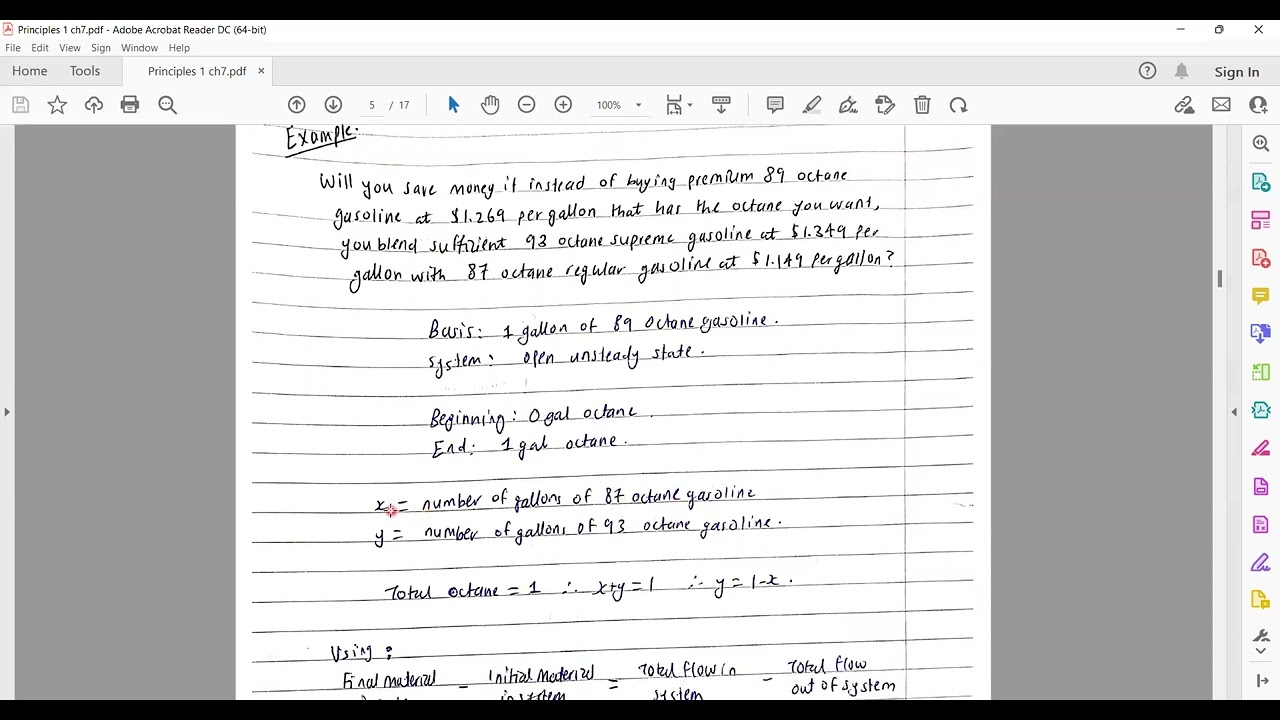 Principles 1 ch7.pdf - Adobe Acrobat Reader DC (64-bit)
File Edit View Sign Window Help
Home Tools Principles 1 ch7.pdf × Sign In
5 / 17 100%
Example:
Will you save money if instead of buying premium 89 octane
gasoline at $1.269 per gallon that has the octane you want,
you blend sufficient 93 octane supreme gasoline at $1.349 per
gallon with 87 octane regular gasoline at $1.149 per gallon?
Basis: 1 gallon of 89 octane gasoline.
System: open unsteady state.
Beginning: 0 gal octane.
End: 1 gal octane.
x = number of gallons of 87 octane gasoline
y = number of gallons of 93 octane gasoline.
Total octane = 1 ∴ x+y=1 ∴ y=1-x.
Using:
Final material - Initial material = Total flow in - Total flow
in system system out of system